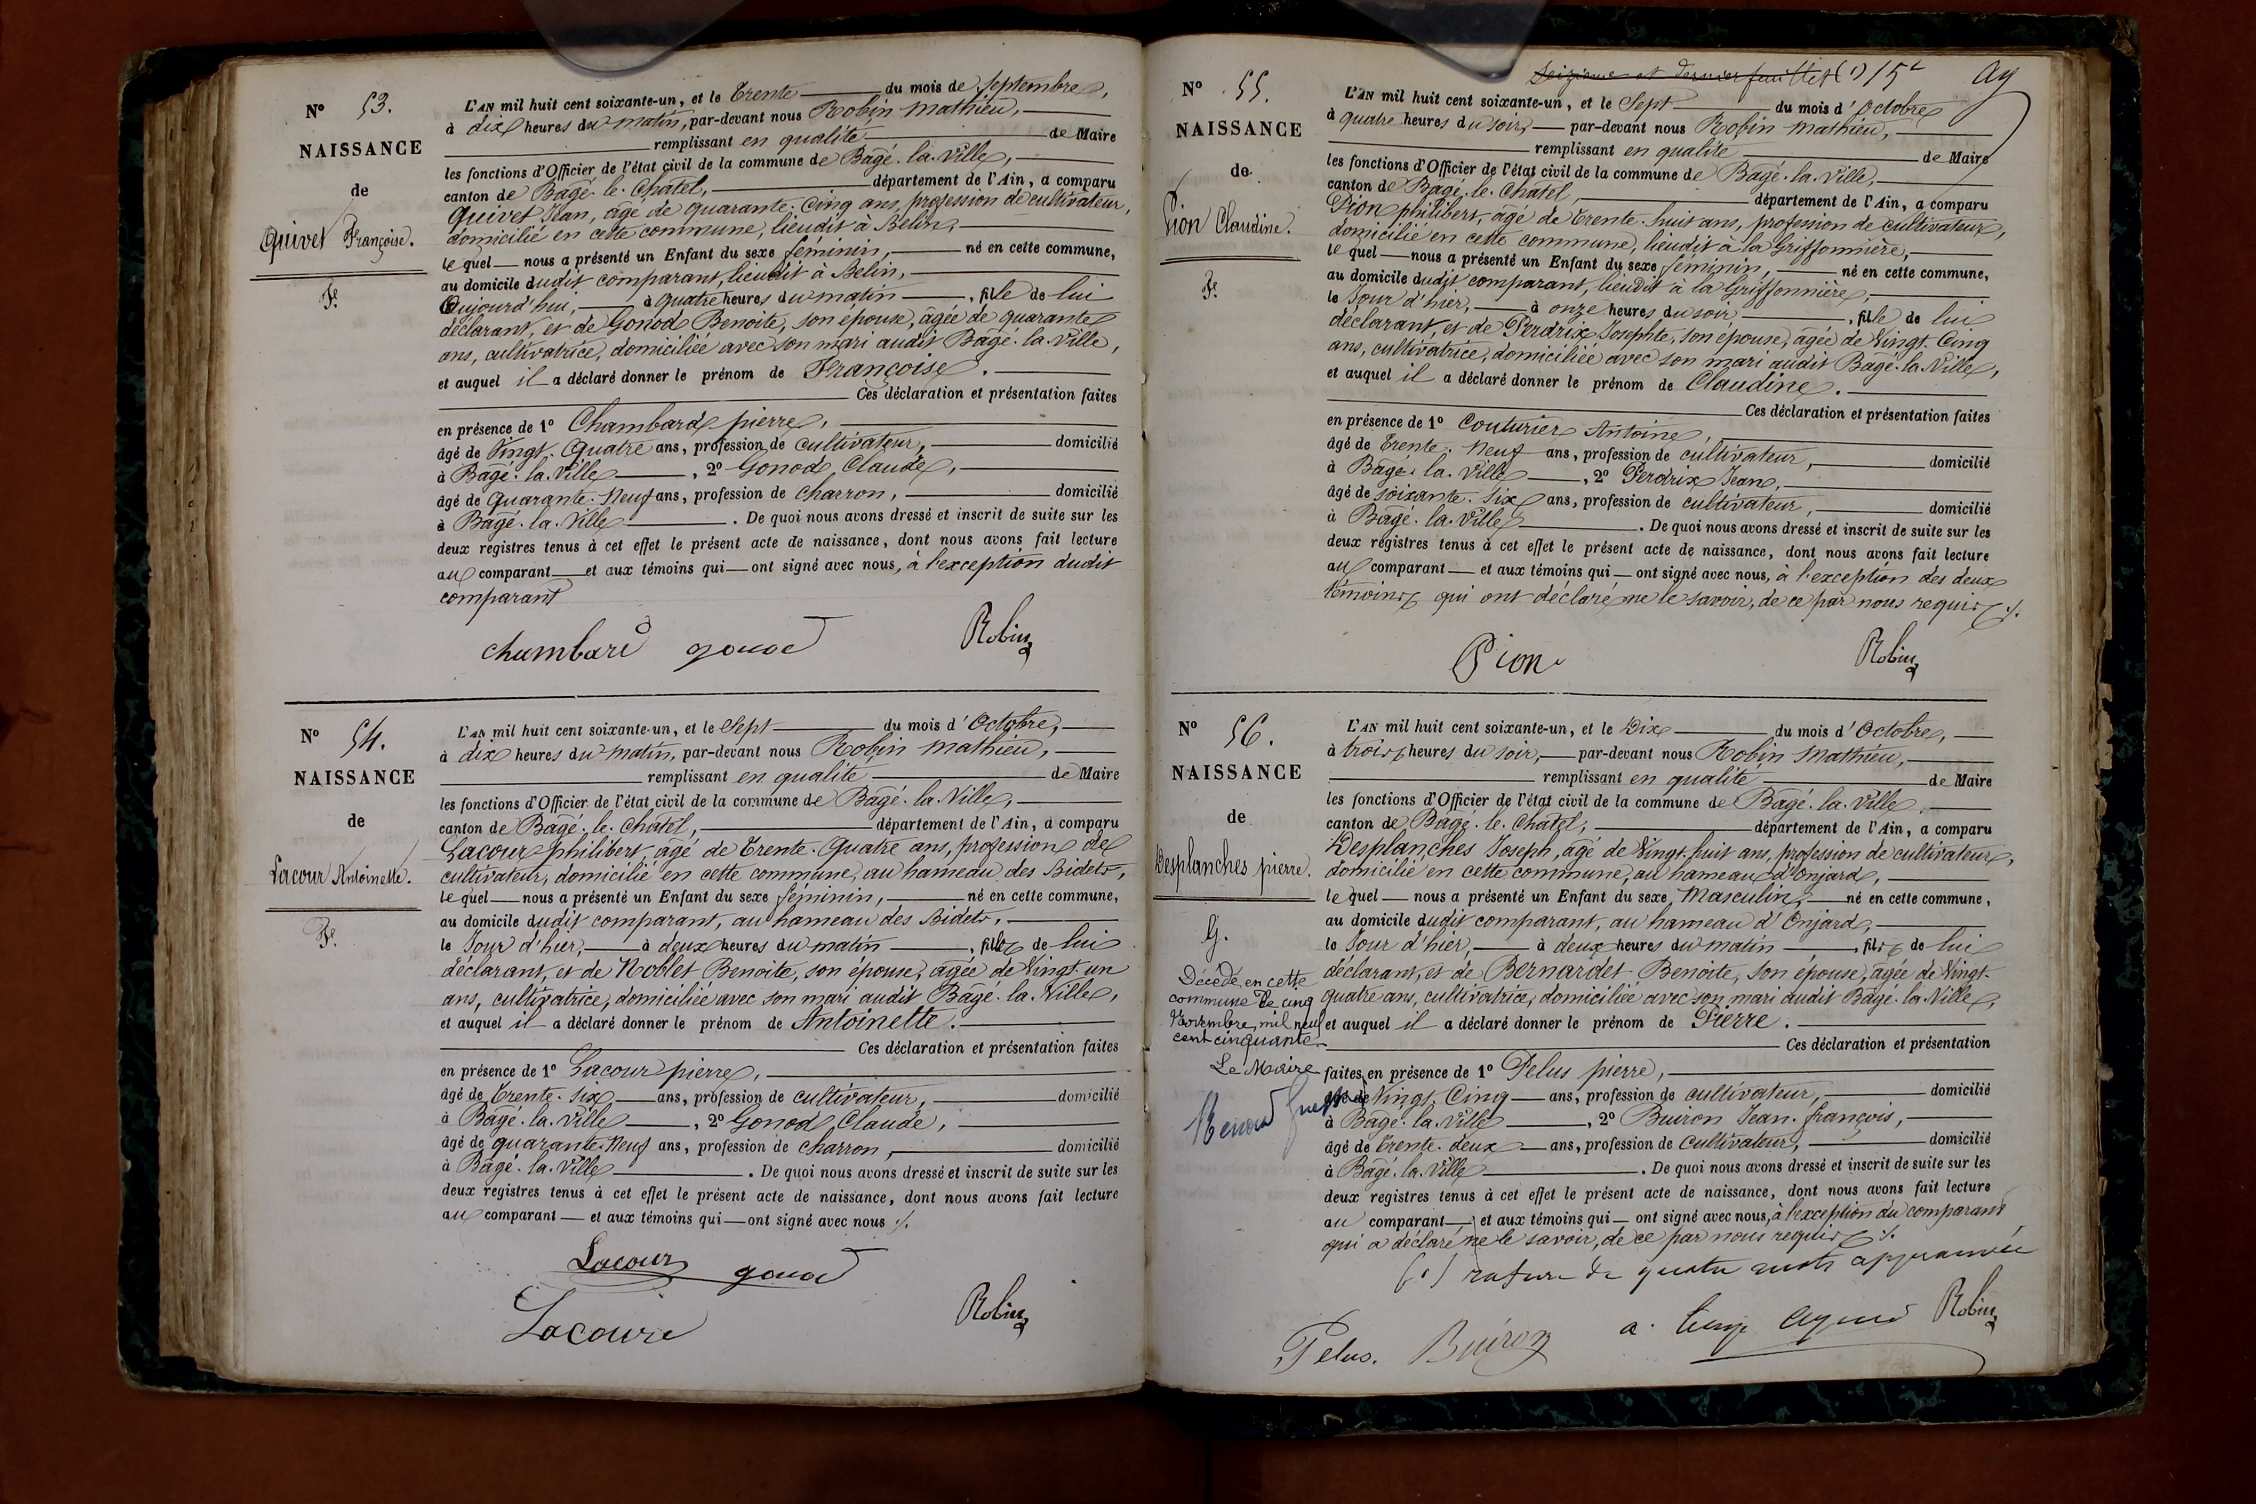 N° 53.
NAISSANCE
de
Quivet Françoise.
Fe.
L'AN mil huit cent soixante-un, et le Trente du mois de Septembre,
à dix heures du matin, par-devant nous Robin Mathieu,
remplissant en qualité de Maire
les fonctions d'Officier de l'état civil de la commune de Bagé-la-Ville,
canton de Bagé-le-Chatel, département de l'Ain, a comparu
Quivet Jean, âgé de quarante-Cinq ans, profession de cultivateur,
domicilié en cette commune, lieudit à Belin,
le quel nous a présenté un Enfant du sexe féminin, né en cette commune,
au domicile dudit comparant, lieudit à Belin,
Aujourd'hui, à quatre heures du matin, fille de lui
déclarant, et de Gonod Benoite, son épouse, âgée de quarante
ans, cultivatrice, domiciliée avec son mari audit Bagé-la-Ville,
et auquel il a déclaré donner le prénom de Françoise.
Ces déclaration et présentation faites
en présence de 1° Chambard pierre,
âgé de Vingt-Quatre ans, profession de cultivateur, domicilié
à Bagé-la-Ville, 2° Gonod Claude,
âgé de quarante-Neuf ans, profession de charron, domicilié
à Bagé-la-Ville. De quoi nous avons dressé et inscrit de suite sur les
deux registres tenus à cet effet le présent acte de naissance, dont nous avons fait lecture
au comparant et aux témoins qui ont signé avec nous, à l'exception dudit
comparant
chambard gonod Robin
N° 54.
NAISSANCE
de
Lacour Antoinette.
Fe.
L'AN mil huit cent soixante-un, et le Sept du mois d'Octobre,
à dix heures du matin, par-devant nous Robin Mathieu,
remplissant en qualité de Maire
les fonctions d'Officier de l'état civil de la commune de Bagé-la-Ville,
canton de Bagé-le-Chatel, département de l'Ain, a comparu
Lacour philibert, âgé de Trente-Quatre ans, profession de
cultivateur, domicilié en cette commune, au hameau des Bidets,
le quel nous a présenté un Enfant du sexe féminin, né en cette commune,
au domicile dudit comparant, au hameau des Bidets,
le Jour d'hier, à deux heures du matin, fille de lui
déclarant, et de Noblet Benoite, son épouse, âgée de Vingt-un
ans, cultivatrice, domiciliée avec son mari audit Bagé-la-Ville,
et auquel il a déclaré donner le prénom de Antoinette.
Ces déclaration et présentation faites
en présence de 1° Lacour pierre,
âgé de Trente-Six ans, profession de cultivateur, domicilié
à Bagé-la-Ville, 2° Gonod Claude,
âgé de quarante-Neuf ans, profession de charron, domicilié
à Bagé-la-Ville. De quoi nous avons dressé et inscrit de suite sur les
deux registres tenus à cet effet le présent acte de naissance, dont nous avons fait lecture
au comparant et aux témoins qui ont signé avec nous ./.
Lacour gonod
Lacour Robin
Seizième et dernier feuillet (1) 15e Ay
N° 55.
NAISSANCE
de
Pion Claudine.
Fe.
L'AN mil huit cent soixante-un, et le Sept du mois d'Octobre
à quatre heures du soir, par-devant nous Robin Mathieu,
remplissant en qualité de Maire
les fonctions d'Officier de l'état civil de la commune de Bagé-la-Ville,
canton de Bagé-le-Chatel, département de l'Ain, a comparu
Pion philibert, âgé de Trente-huit ans, profession de cultivateur,
domicilié en cette commune, lieudit à la Griffonnière,
le quel nous a présenté un Enfant du sexe féminin, né en cette commune,
au domicile dudit comparant, lieudit à la Griffonnière,
le Jour d'hier, à onze heures du soir, fille de lui
déclarant, et de Perdrix Josephte, son épouse, âgée de Vingt-Cinq
ans, cultivatrice, domiciliée avec son mari audit Bagé-la-Ville,
et auquel il a déclaré donner le prénom de Claudine.
Ces déclaration et présentation faites
en présence de 1° Couturier Antoine,
âgé de Trente-Neuf ans, profession de cultivateur, domicilié
à Bagé-la-Ville, 2° Perdrix Jean,
âgé de soixante-Six ans, profession de cultivateur, domicilié
à Bagé-la-Ville. De quoi nous avons dressé et inscrit de suite sur les
deux registres tenus à cet effet le présent acte de naissance, dont nous avons fait lecture
au comparant et aux témoins qui ont signé avec nous, à l'exception des deux
témoins qui ont déclaré ne le savoir, de ce par nous requis ./.
Pion Robin
N° 56.
NAISSANCE
de
Desplanches pierre.
G.
Décédé en cette
commune le cinq
Novembre mil neuf
cent cinquante.
Le Maire
L'AN mil huit cent soixante-un, et le Dix du mois d'Octobre,
à trois heures du soir, par-devant nous Robin Mathieu,
remplissant en qualité de Maire
les fonctions d'Officier de l'état civil de la commune de Bagé-la-Ville,
canton de Bagé-le-Chatel, département de l'Ain, a comparu
Desplanches Joseph, âgé de Vingt-huit ans, profession de cultivateur,
domicilié en cette commune, au hameau d'Onjard,
le quel nous a présenté un Enfant du sexe Masculin, né en cette commune,
au domicile dudit comparant, au hameau d'Onjard,
le Jour d'hier, à deux heures du matin, fils de lui
déclarant, et de Bernardet Benoite, son épouse, âgée de Vingt-
quatre ans, cultivatrice, domiciliée avec son mari audit Bagé-la-Ville,
et auquel il a déclaré donner le prénom de Pierre.
Ces déclaration et présentation
faites en présence de 1° Pelus pierre,
âgé de Vingt-Cinq ans, profession de cultivateur, domicilié
à Bagé-la-Ville, 2° Buiron Jean-françois,
âgé de Trente-deux ans, profession de cultivateur, domicilié
à Bagé-la-Ville. De quoi nous avons dressé et inscrit de suite sur les
deux registres tenus à cet effet le présent acte de naissance, dont nous avons fait lecture
au comparant et aux témoins qui ont signé avec nous, à l'exception du comparant
qui a déclaré ne le savoir, de ce par nous requis ./.
(1) rature de quatre mots approuvée
Pelus. Buiron Robin